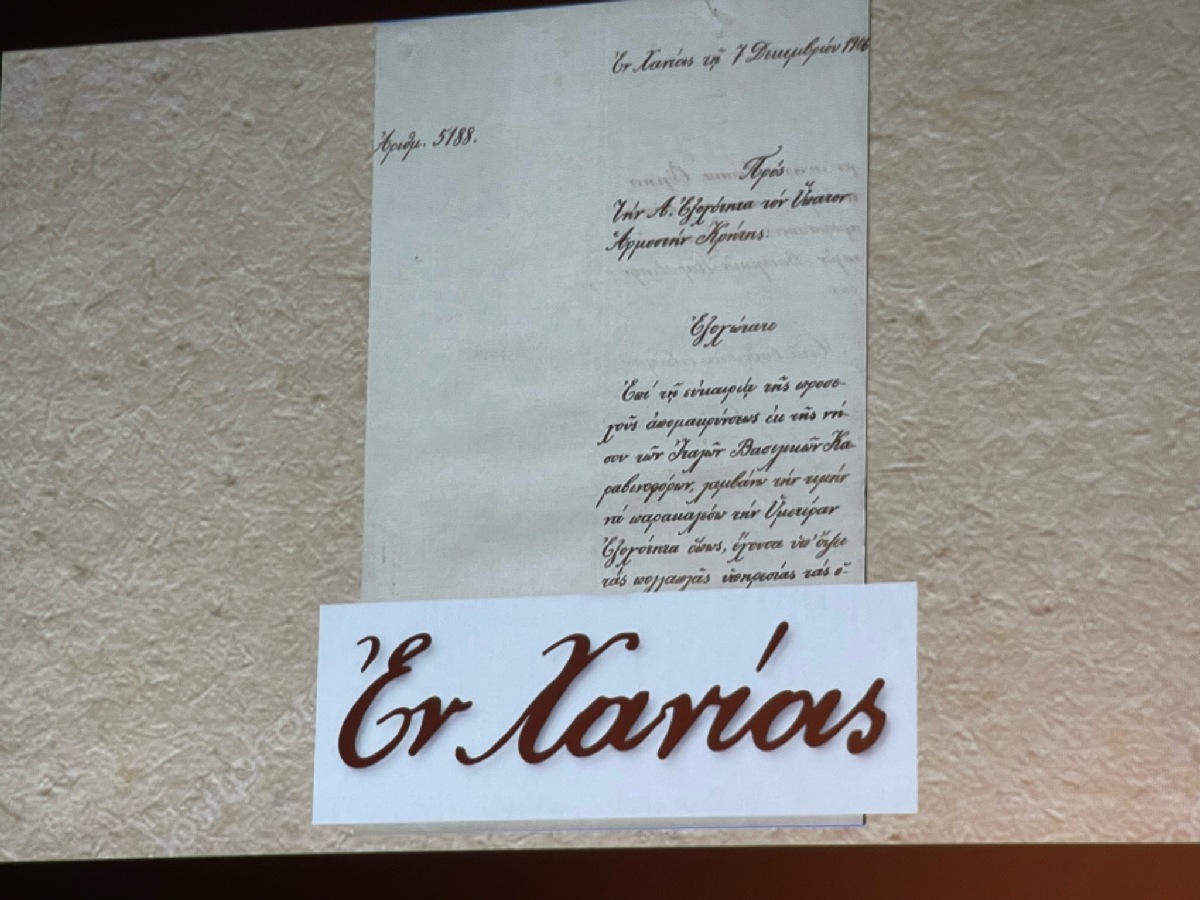 Ἐν Χανίαις τῇ 7 Δεκεμβρίου 1906
Ἀριθμ. 5188.
Πρός
Τὴν Α. Ἐξοχότητα τὸν Ὕπατον
Ἁρμοστὴν Κρήτης.
Ἐξοχώτατε
Ἐπὶ τῇ εὐκαιρίᾳ τῆς προσε-
χοῦς ἀπομακρύνσεως ἐκ τῆς νή-
σου τῶν Ἰταλῶν Βασιλικῶν Κα-
ραβινοφόρων, λαμβάνω τὴν τιμὴν
νὰ παρακαλέσω τὴν Ὑμετέραν
Ἐξοχότητα ὅπως, ἔχουσα ὑπ' ὄψει
τὰς πολλαπλᾶς ὑπηρεσίας τὰς ὁ-
Ἐν Χανίαις